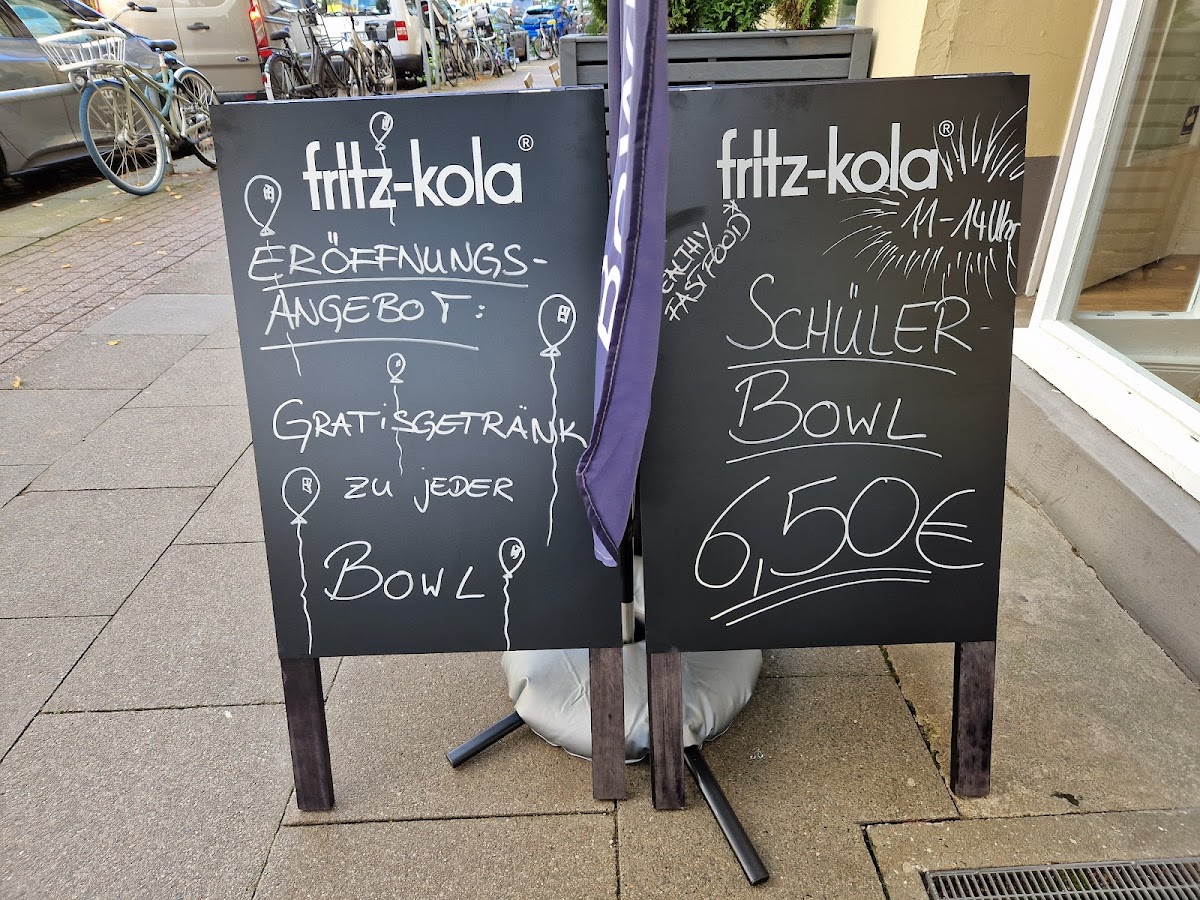 fritz-kola®
ERÖFFNUNGS-
ANGEBOT:
GRATISGETRÄNK
ZU JEDER
BOWL
BOW
fritz-kola®
11-14 Uhr
FASTFOOD)
SCHÜLER-
BOWL
6,50€